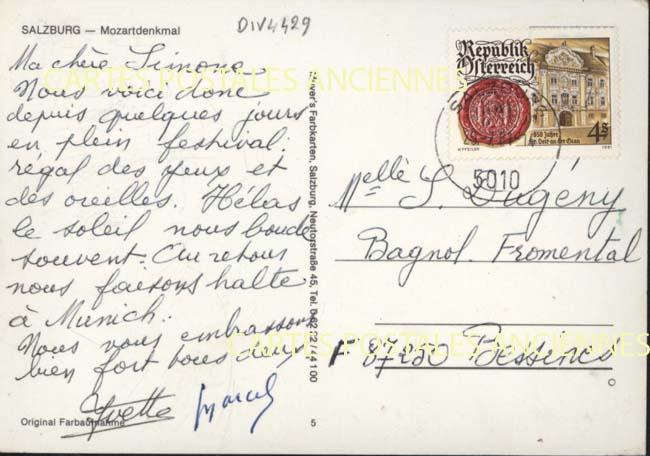 SALZBURG — Mozartdenkmal
DIV4429
Ma chère Simone
Nous voici donc
depuis quelques jours
en plein festival.
régal des yeux et
des oreilles. Hélas
le soleil nous boude
souvent. Au retour
nous faisons halte
à Munich.
Nous vous embrassons
bien fort tous deux
Yvette Marcel
Original Farbaufnahme
5
Farbkarten, Salzburg, Neutorstraße 45, Tel.
Republik
Österreich
850 Jahre
St. Veit an der Glan
4 S
1981
5010
Melle S. Dugény
Bagnol. Fromental
F 87250 Bessines
CARTES POSTALES ANCIENNES
CARTES POSTALES ANCIENNES